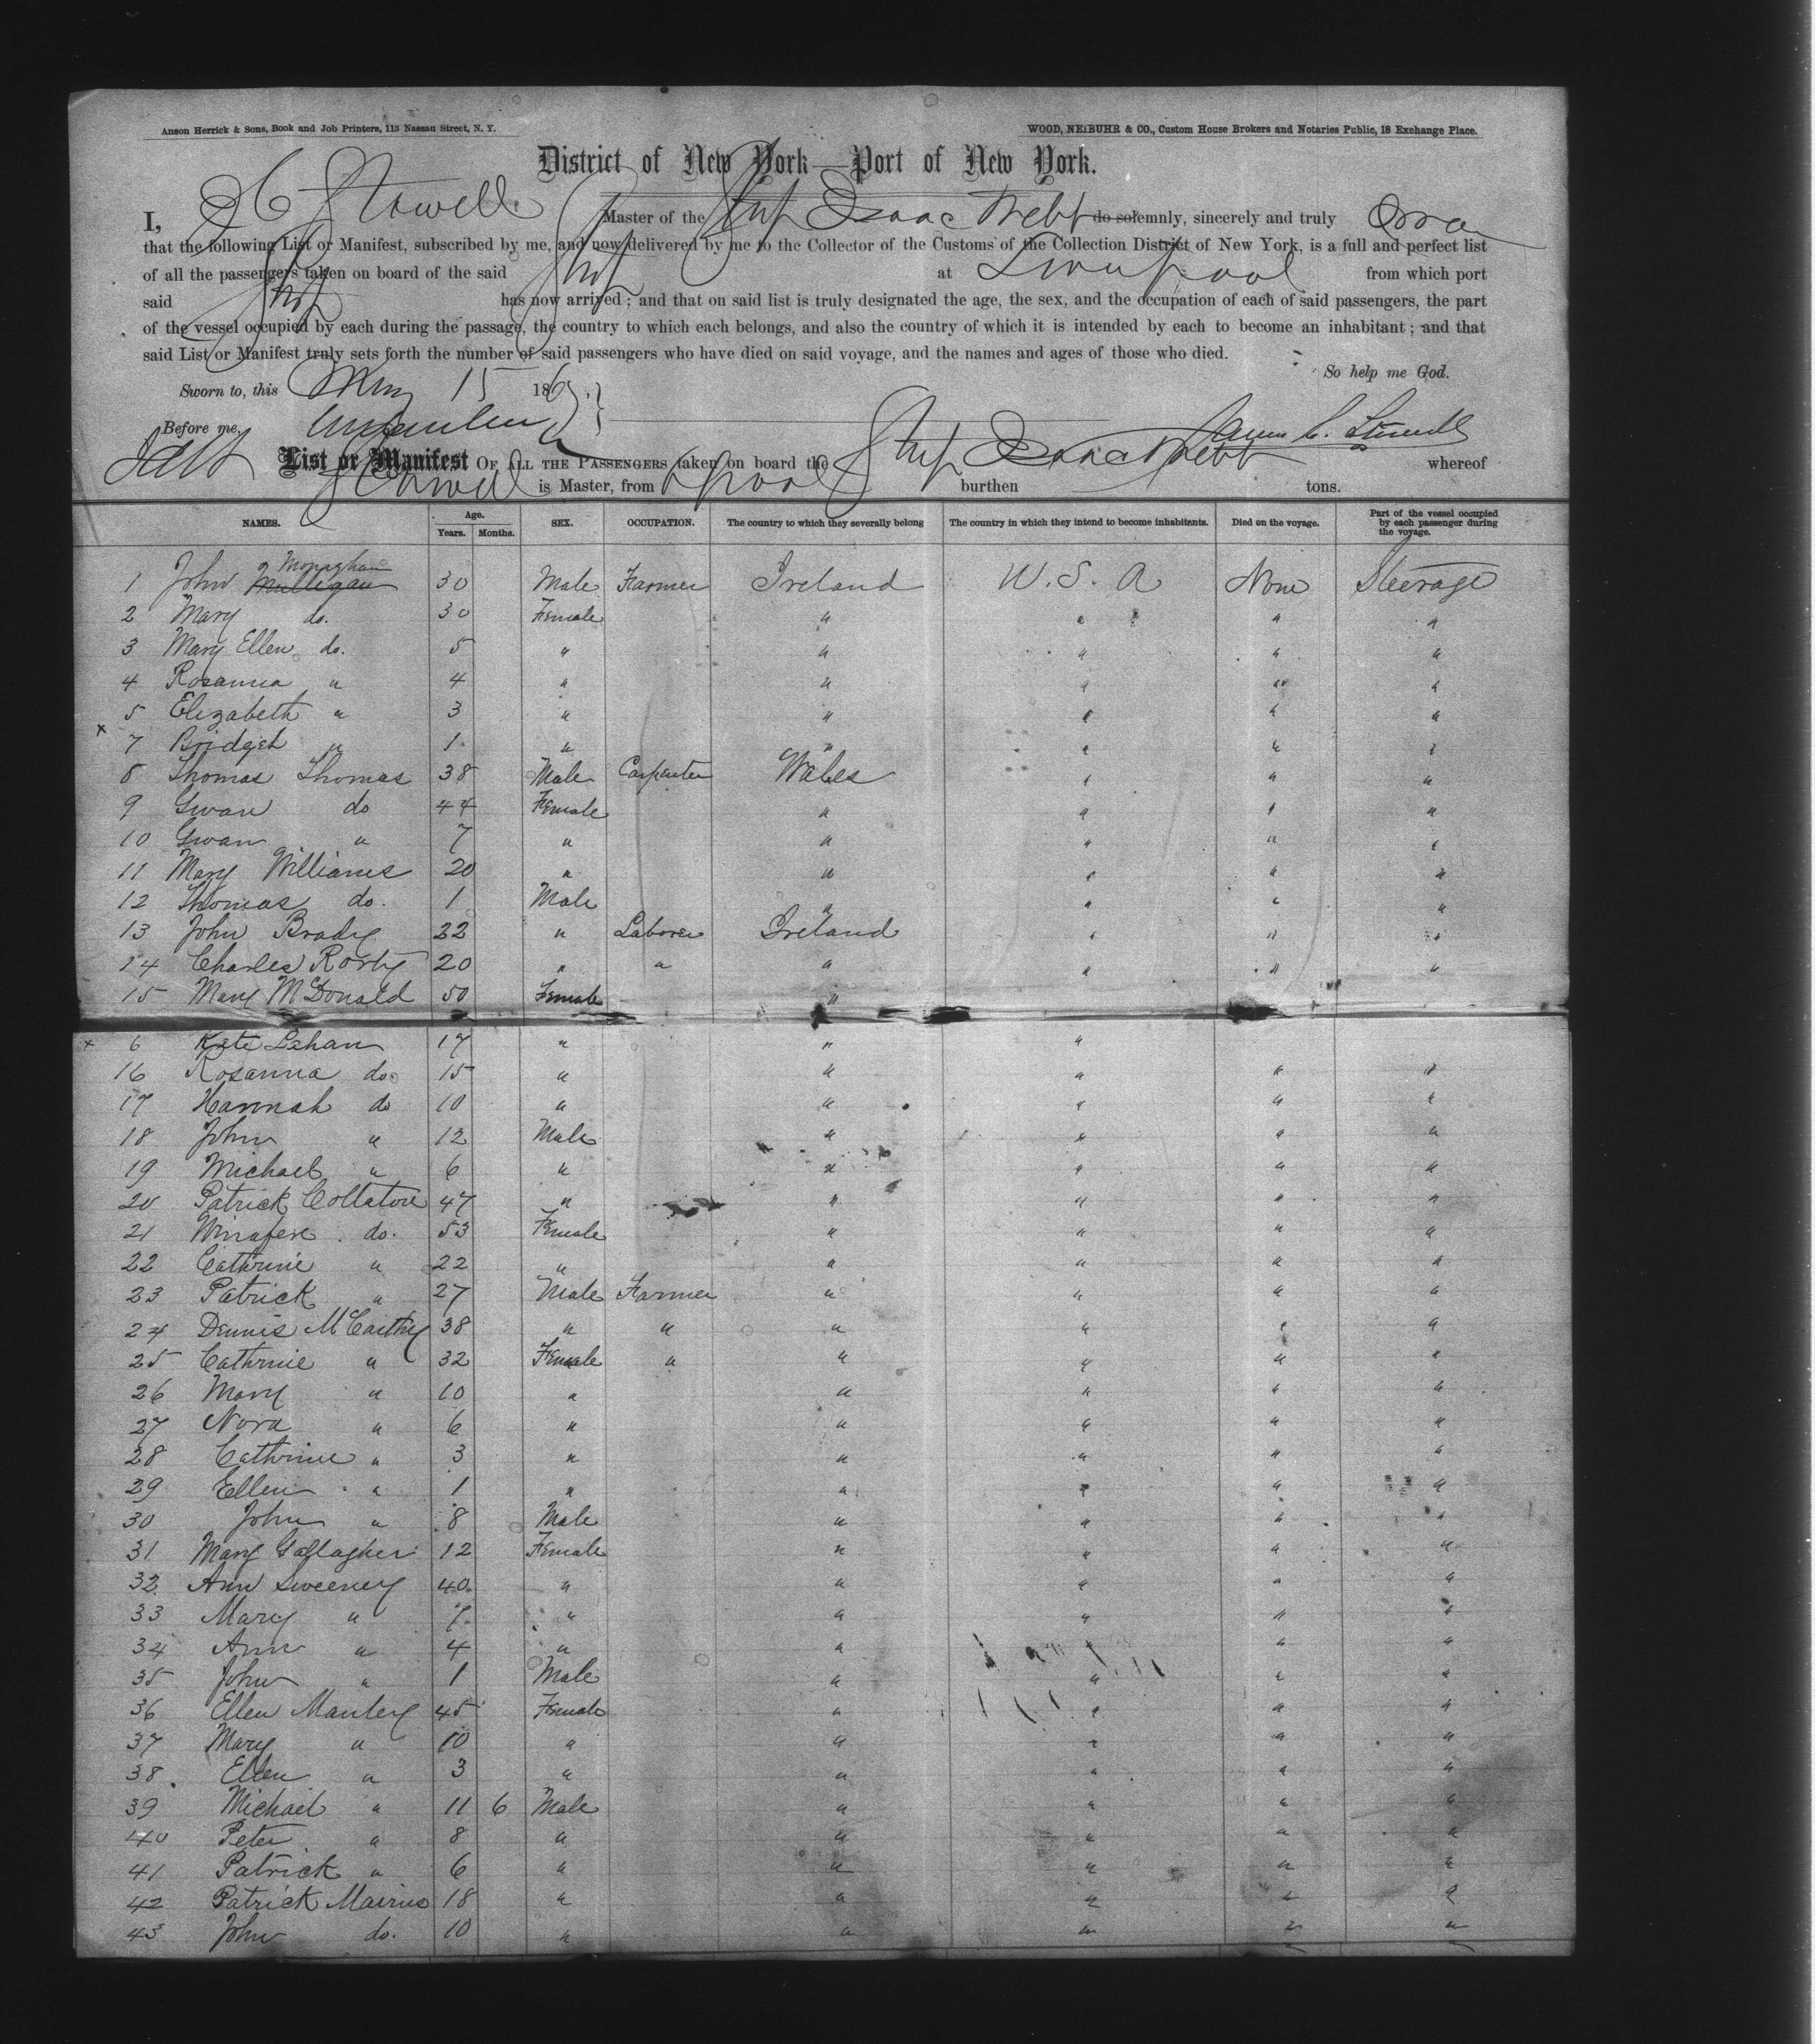 Anson Herrick & Sons, Book and Job Printers, 113 Nassau Street, N. Y. WOOD, NEIBUHR & CO., Custom House Brokers and Notaries Public, 18 Exchange Place.
District of New York—Port of New York.
I, Stowell Master of the Ship Isaac Webb do solemnly, sincerely and truly
that the following List or Manifest, subscribed by me, and now delivered by me to the Collector of the Customs of the Collection District of New York, is a full and perfect list
of all the passengers taken on board of the said Ship at Liverpool from which port
said Ship has now arrived; and that on said list is truly designated the age, the sex, and the occupation of each of said passengers, the part
of the vessel occupied by each during the passage, the country to which each belongs, and also the country of which it is intended by each to become an inhabitant; and that
said List or Manifest truly sets forth the number of said passengers who have died on said voyage, and the names and ages of those who died.
So help me God.
Sworn to, this May 15 186
Before me,
List or Manifest OF ALL THE PASSENGERS taken on board the Ship Isaac Webb whereof
Stowell is Master, from Lpool burthen tons.
NAMES. Age. Years. Months. SEX. OCCUPATION. The country to which they severally belong The country in which they intend to become inhabitants. Died on the voyage. Part of the vessel occupied by each passenger during the voyage.
1 John Mulligan Monaghan 30 Male Farmer Ireland U. S. A None Steerage
2 Mary do. 30 Female " " " "
3 Mary Ellen do. 5 " " " " "
4 Rosanna " 4 " " " " "
5 Elizabeth " 3 " " " " "
x 7 Bridget " 1 " " " " "
8 Thomas Thomas 38 Male Carpenter Wales " " "
9 Gwan do 44 Female " " " "
10 Gwan " 7 " " " " "
11 Mary Williams 20 " " " " "
12 Thomas do. 1 Male " " " "
13 John Brady 22 " Laborer Ireland " " "
14 Charles Rorty 20 " " " " " "
15 Mary McDonald 50 Female "
x 6 Kate Lehan 17 " " "
16 Rosanna do. 15 " " " " "
17 Hannah do 10 " " " " "
18 John " 12 Male " " " "
19 Michael " 6 " " " " "
20 Patrick Collatore 47 " " " " "
21 Winafere do. 53 Female " " " "
22 Cathrine " 22 " " " " "
23 Patrick " 27 Male Farmer " " " "
24 Dennis McCarthy 38 " " " " " "
25 Cathrine " 32 Female " " " " "
26 Mary " 10 " " " " "
27 Nora " 6 " " " " "
28 Cathrine " 3 " " " " "
29 Ellen " 1 " " " " "
30 John " 8 Male " " " "
31 Mary Gallagher 12 Female " " " "
32 Ann Sweeney 40 " " " " "
33 Mary " 7 " " " " "
34 Ann " 4 " " " " "
35 John " 1 Male " " " "
36 Ellen Manley 45 Female " " " "
37 Mary " 10 " " " " "
38 Ellen " 3 " " " " "
39 Michael " 11 6 Male " " " "
40 Peter " 8 " " " " "
41 Patrick " 6 " " " " "
42 Patrick Mairus 18 " " " " "
43 John do. 10 " " " " "